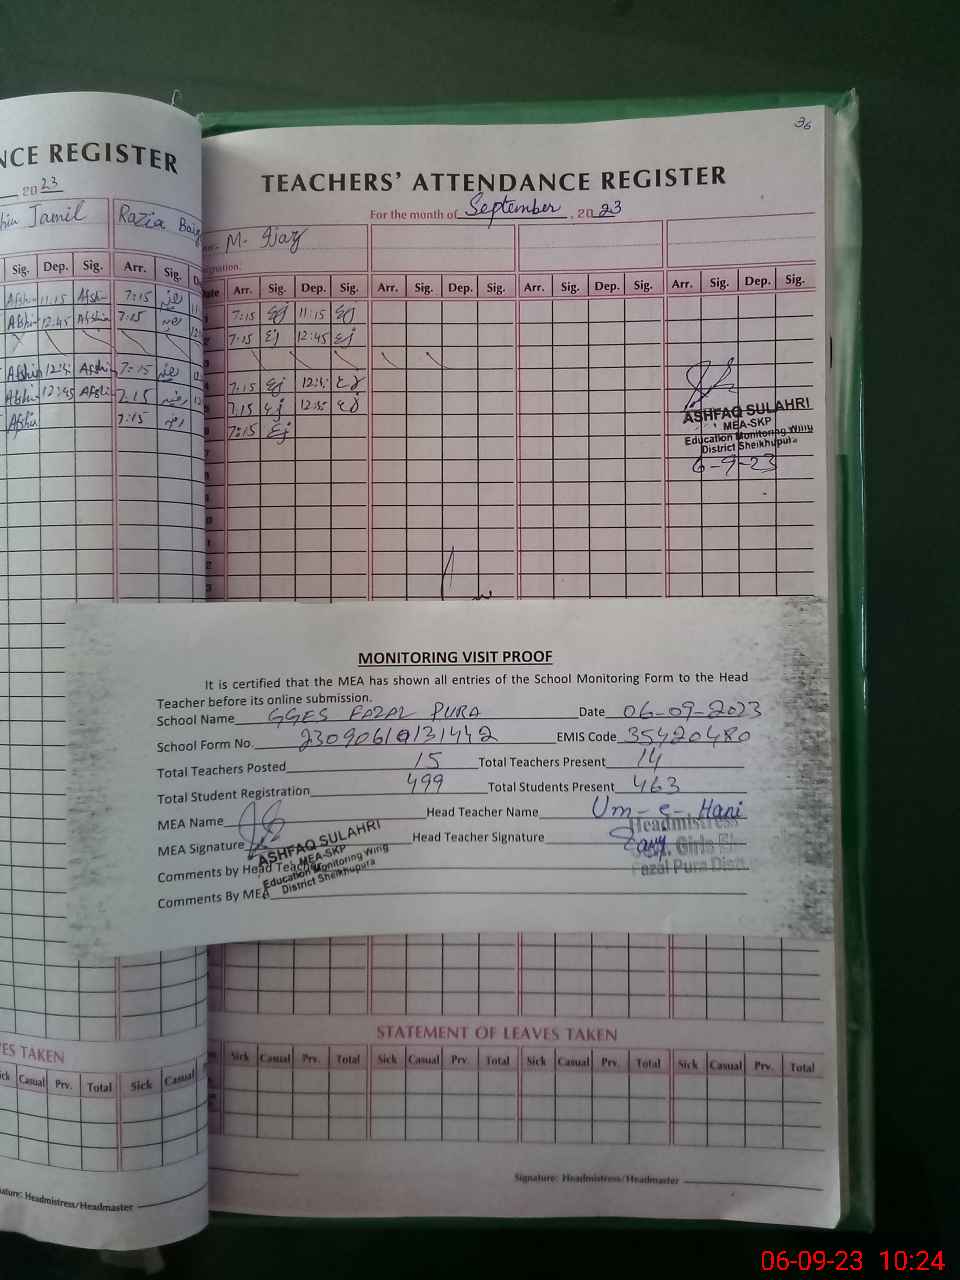 NCE REGISTER
20 23
Jamil Razia Baig
Sig. Dep. Sig. Arr. Sig.
Afshin 11:15 Afshin 7:15
Afshin 12:45 Afshin 7:15
Afshin Afshin 7:15
Afshin 12:45 Afshin 7:15
Afshin 7:15
36
TEACHERS' ATTENDANCE REGISTER
For the month of September, 20 23
M. Ijaz
signation:
Date Arr. Sig. Dep. Sig. Arr. Sig. Dep. Sig. Arr. Sig. Dep. Sig. Arr. Sig. Dep. Sig.
7:15 11:15
7:15 12:45
7:15
7:15
7:15
ASHFAQ SULAHRI
MEA-SKP
Education Monitoring Wing
District Sheikhupura
6-9-23
MONITORING VISIT PROOF
It is certified that the MEA has shown all entries of the School Monitoring Form to the Head
Teacher before its online submission.
School Name GGES FAZAL PURA Date 06-09-2023
School Form No. EMIS Code 35420480
Total Teachers Posted 15 Total Teachers Present 14
Total Student Registration 499 Total Students Present 463
MEA Name Head Teacher Name Um-e-Hani
MEA Signature Head Teacher Signature
Comments by Head Teacher
Comments By MEA
ASHFAQ SULAHRI
MEA-SKP
Education Monitoring Wing
District Sheikhupura
Headmistress
Girls El
Fazal Pura Distt.
STATEMENT OF LEAVES TAKEN
Sick Casual Prv. Total Sick Casual Prv. Total Sick Casual Prv. Total Sick Casual Prv. Total
Signature: Headmistress/Headmaster
VES TAKEN
ick Casual Prv. Total Sick Casual
nature: Headmistress/Headmaster
06-09-23 10:24